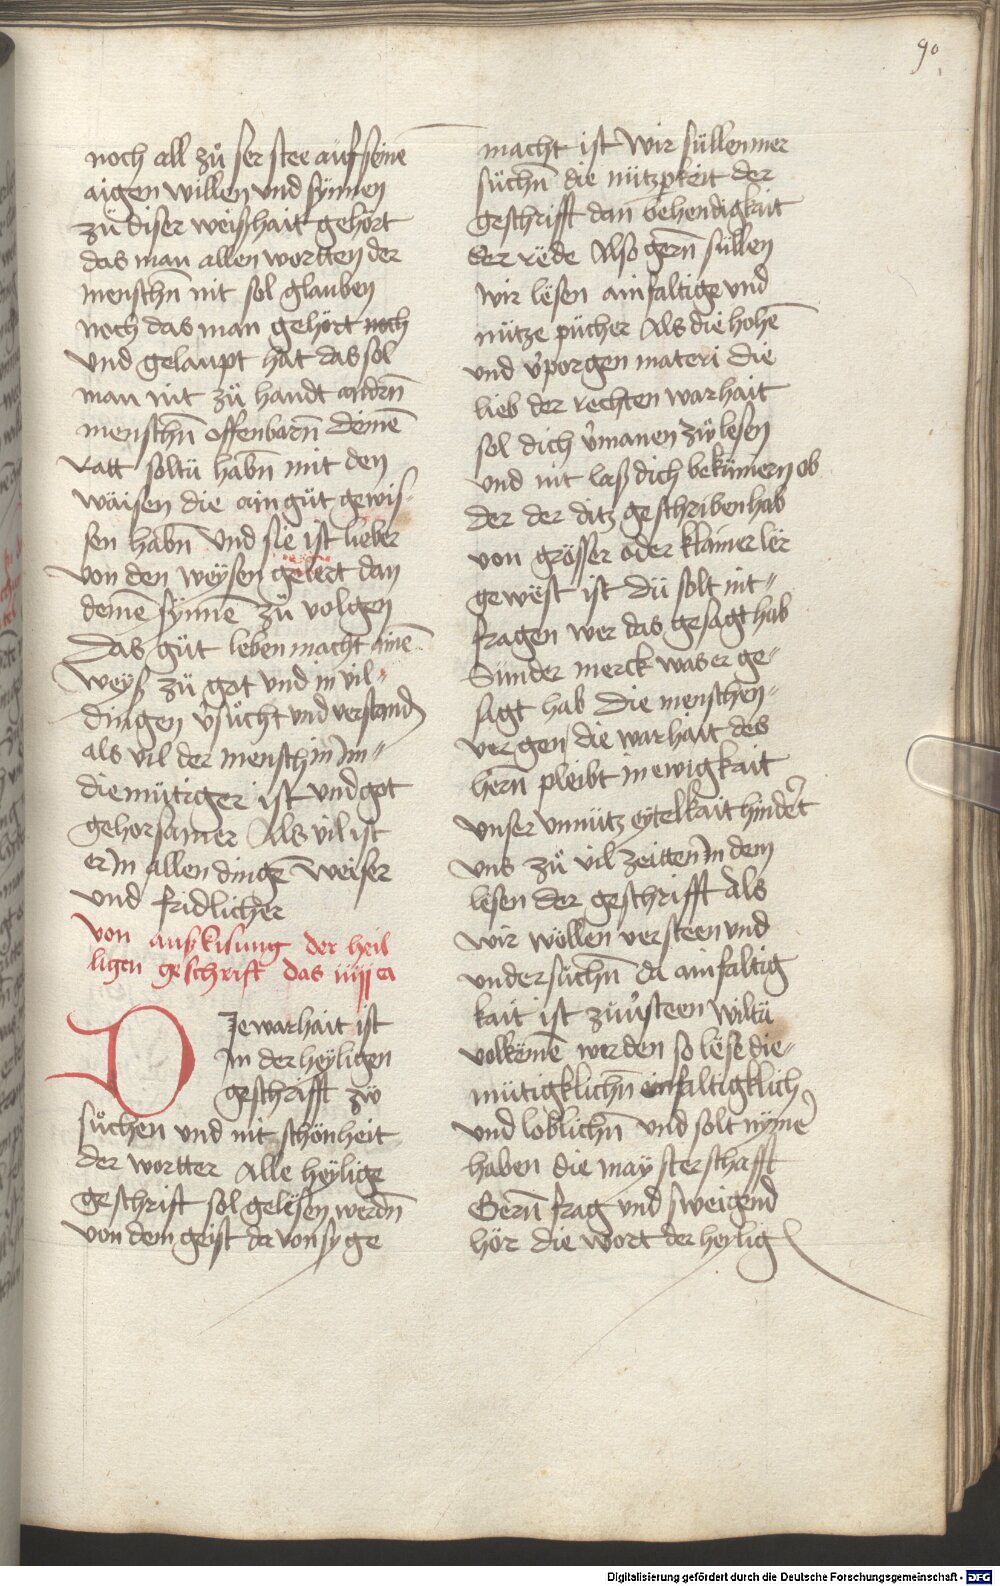 90
noch all zů ser stee auf seinē
aigen willen vnd sÿnnen
zü diser weißhait gehört
das man allen wortten der
menschn̄ nit sol glauben
noch das man gehört noch
vnd gelaupt hat das sol
man nit zü handt andrn̄
menschn̄ offenbarn̄ deinē
Ratt soltü habn̄ mit den
wäisen die ain güt gewis-
sen habn̄ vnd sie ist lieber
von den weÿsen gelert dan
deinē sÿnnē zü volgen
Das güt leben macht ainē
weÿß zü got vnd in vil-
dingen v̉sůcht vnd verstand
als vil der mensch in im-
diemütiger ist vnd got
gehorsamer Als vil ist
er in allen dingē weiser
vnd fridlicher
von außkisung der heil
ligen geschrift das iiiij ca
Die warhait ist
In der heÿligen
geschrifft zü
sůchen vnd nit schönheit
der wortter Alle heÿlige
geschrift sol gelësen werdn̄
von dem geist da von sÿ ge
macht ist Wir süllen mer
süchn̄ die nützperkeit der
geschrifft dan behendigkait
der rëde Also gern̄ süllen
wir lësen ainfaltige vnd
nütze pücher Als die hohē
vnd v̉porgen materi die
lieb der rechten warhait
sol dich v̉manen zü lesen
vnd nit laß dich bekümern ob
der der ditz geschriben hab
von grösser oder klainer lër
gewëst ist Dü solt nit-
fragen wer das gesagt hab
Sünder merck was er ge-
sagt hab Die menschen-
vergen die warhait des
hern̄ pleibt in ewigkait
vnser vnnütz eÿtelkait hindert
vns zů vil zeitten in dem
lesen der geschrifft Als
wir wöllen versteen vnd
vndersüchn̄ da ainfaltig
kait ist zü v̉steen Wiltü
volkëmē werden so lëse die-
mütigklichn̄ einfaltigklich
vnd loblichn̄ vnd solt nÿmē
haben die maÿsterschafft
Gern̄ frag vnd sweigend
hör die wort der heÿlig
Digitalisierung gefördert durch die Deutsche Forschungsgemeinschaft - DFG